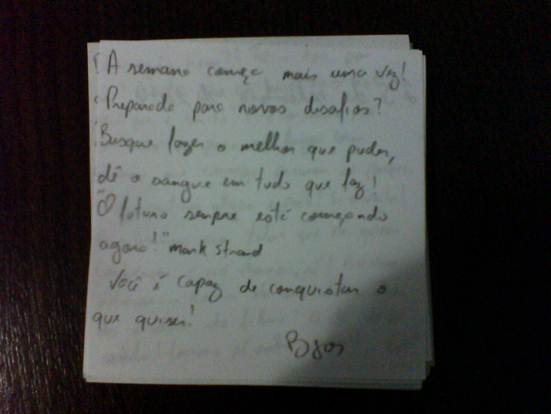 A semana começa mais uma vez!
Preparada para novos desafios?
Busque fazer o melhor que puder,
dê o sangue em tudo que faz!
"O futuro sempre está começando
agora!" Mark Strand
Você é capaz de conquistar o
que quiser!
Bjos